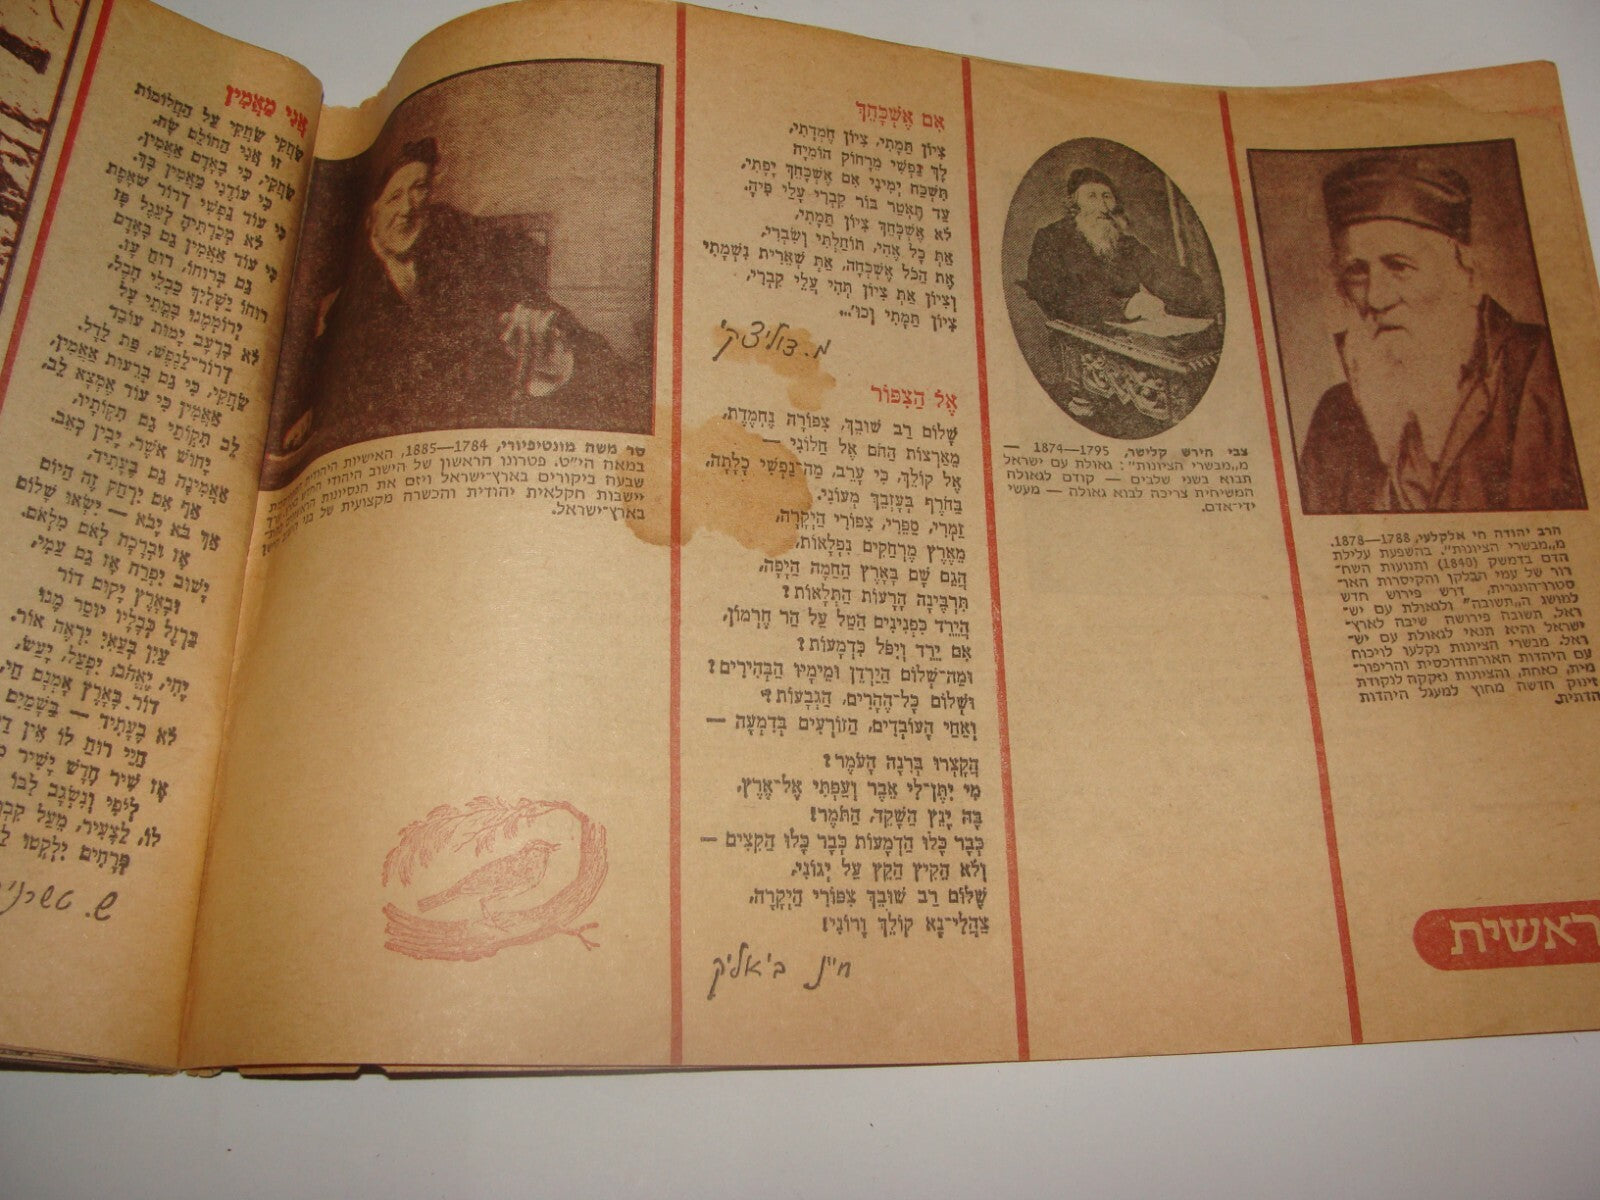 ראשית
הרב יהודה חי אלקלעי, 1788—1878.
מ„מבשרי הציונות". בהשפעת עלילת
הדם בדמשק (1840) ותנועות השח־
רור של עמי הבלקן והקיסרות האו־
סטרו־הונגרית, דרש פירוש חדש
למושג ה„תשובה" ולגאולת עם יש־
ראל. תשובה פירושה שיבה לארץ־
ישראל והיא תנאי לגאולת עם יש־
ראל. מבשרי הציונות נקלעו לויכוח
עם היהדות האורתודוכסית והריפור־
מית, כאחת, והציונות נזקקה לנקודת
זינוק חדשה מחוץ למעגל היהדות
הדתית.
צבי הירש קלישר, 1795—1874 —
מ„מבשרי הציונות": גאולת עם ישראל
תבוא בשני שלבים — קודם לגאולה
המשיחית צריכה לבוא גאולה — מעשי
ידי־אדם.
אִם אֶשְׁכָּחֵךְ
צִיּוֹן תַּמָּתִי, צִיּוֹן חֶמְדָּתִי,
לָךְ נַפְשִׁי מֵרָחוֹק הוֹמִיָּה
תִּשְׁכַּח יְמִינִי אִם אֶשְׁכָּחֵךְ יָפָתִי,
עַד תֶּאְטַר בּוֹר קִבְרִי עָלַי פִּיהָ.
לֹא אֶשְׁכָּחֵךְ צִיּוֹן תַּמָּתִי,
אַתְּ כָּל אֶהִי, תּוֹחַלְתִּי וְשִׂבְרִי,
אֶת הַכֹּל אֶשְׁכָּחָה, אַתְּ שְׁאֵרִית נִשְׁמָתִי
וְצִיּוֹן אַתְּ צִיּוֹן תְּהִי עֲלֵי קִבְרִי,
צִיּוֹן תַּמָּתִי וְכוּ'...
מ. דוליצקי
אֶל הַצִּפּוֹר
שָׁלוֹם רַב שׁוּבֵךְ, צִפּוֹרָה נֶחְמֶדֶת,
מֵאַרְצוֹת הַחֹם אֶל חַלּוֹנִי —
אֶל קוֹלֵךְ, כִּי עָרֵב, מַה־נַּפְשִׁי כָלָתָה,
בַּחֹרֶף בְּעָזְבֵךְ מְעוֹנִי.
זַמְּרִי, סַפְּרִי, צִפּוֹרִי הַיְקָרָה,
מֵאֶרֶץ מֶרְחַקִּים נִפְלָאוֹת,
הֲגַם שָׁם בָּאָרֶץ הַחַמָּה הַיָּפָה,
תִּרְבֶּינָה הָרָעוֹת הַתְּלָאוֹת?
הֲיֵרֵד כִּפְנִינִים הַטַּל עַל הַר חֶרְמוֹן,
אִם יֵרֵד וְיִפֹּל כִּדְמָעוֹת?
וּמַה־שְּׁלוֹם הַיַּרְדֵּן וּמֵימָיו הַבְּהִירִים?
וּשְׁלוֹם כָּל־הֶהָרִים, הַגְּבָעוֹת?
וְאַחַי הָעוֹבְדִים, הַזּוֹרְעִים בְּדִמְעָה —
הֲקָצְרוּ בְרִנָּה הָעֹמֶר?
מִי יִתֶּן־לִי אֵבֶר וְעַפְתִּי אֶל־אֶרֶץ,
בָּהּ יָנֵץ הַשָּׁקֵד, הַתֹּמֶר!
כְּבָר כָּלוּ הַדְּמָעוֹת כְּבָר כָּלוּ הַקִּצִּים —
וְלֹא הֵקִיץ הַקֵּץ עַל יְגוֹנִי,
שָׁלוֹם רַב שׁוּבֵךְ צִפּוֹרִי הַיְקָרָה,
צַהֲלִי־נָא קוֹלֵךְ וָרוֹנִּי!
ח״נ ביאליק
סר משה מונטיפיורי, 1784—1885, האישיות היהודית
במאה הי"ט. פטרונו הראשון של הישוב היהודי
שבעה ביקורים בארץ־ישראל ויזם את הנסיונות הראשונים
יישבות חקלאית יהודית והכשרה מקצועית של בני
בארץ־ישראל.
אֲנִי מַאֲמִין
שַׂחֲקִי שַׂחֲקִי עַל הַחֲלוֹמוֹת
זוּ אֲנִי הַחוֹלֵם שָׂח,
שַׂחֲקִי, כִּי בָאָדָם אַאֲמִין,
כִּי עוֹדֶנִּי מַאֲמִין בָּךְ.
כִּי עוֹד נַפְשִׁי דְּרוֹר שׁוֹאֶפֶת
לֹא מְכַרְתִּיהָ לְעֵגֶל פָּז
כִּי עוֹד אַאֲמִין גַּם בָּאָדָם
גַּם בְּרוּחוֹ, רוּחַ עָז.
רוּחוֹ יַשְׁלִיךְ כַּבְלֵי הֶבֶל,
יְרוֹמְמֶנּוּ בָּמֳתֵי עָל
לֹא בָרָעָב יָמוּת עוֹבֵד
דְּרוֹר־לַנֶּפֶשׁ, פַּת לַדָּל.
שַׂחֲקִי, כִּי גַּם בְּרֵעוּת אַאֲמִין,
אַאֲמִין כִּי עוֹד אֶמְצָא לֵב,
לֵב תִּקְוֹתַי גַּם תִּקְוֹתָיו,
יָחוּשׁ אֹשֶׁר, יָבִין כְּאֵב.
אַאֲמִינָה גַּם בֶּעָתִיד,
אַף אִם יִרְחַק זֶה הַיּוֹם
אַךְ בֹּא יָבֹא — יִשְׂאוּ שָׁלוֹם
אָז וּבְרָכָה לְאֹם מִלְאֹם.
יָשׁוּב יִפְרַח אָז גַּם עַמִּי,
וּבָאָרֶץ יָקוּם דּוֹר
בַּרְזֶל כְּבָלָיו יוּסַר מֶנּוּ
עַיִן בְּעַיִן יִרְאֶה אוֹר.
יִחְיֶה, יֶאֱהַב, יִפְעַל, יַעַשׂ,
דּוֹר. בָּאָרֶץ אָמְנָם חַי,
לֹא בֶּעָתִיד — בַּשָּׁמַיִם
חַיֵּי רוּחַ לוֹ אֵין
אָז שִׁיר חָדָשׁ יָשִׁיר
לְיֹפִי וְנִשְׂגָּב לִבּוֹ
לוֹ, לַצָּעִיר, מֵעַל
פְּרָחִים יִלְקְטוּ
ש. טשרני